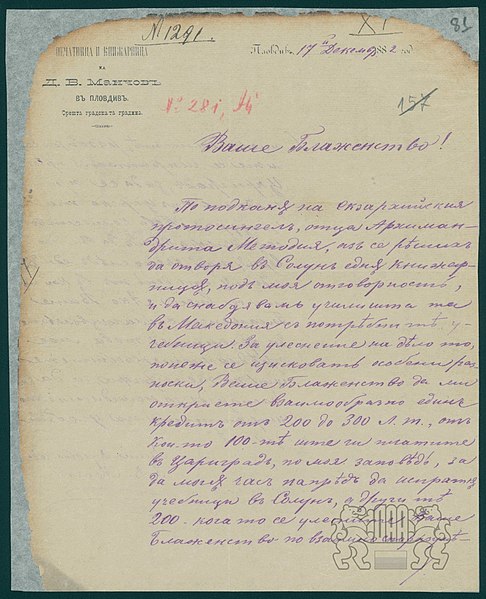 № 1291.
XI
81
ПЕЧАТНИЦА И КНИЖАРНИЦА
НА
Д. В. Манчовъ
ВЪ ПЛОВДИВЪ.
Срешта градската градина.
Пловдивъ, 17й Декемв. 1882 год.
№ 281,
157
Ваше Блаженство!
По подканя на екзархийския
протосингелъ, отца Архиман-
дрита Методия, азъ се рѣшихъ
да отворя въ Солунъ една книжар-
ница, подъ моя отговорность,
и да снабдувамъ училишта та
въ Македония съ потрѣбни тѣ у-
чебници. За улеснение на дѣло то,
понеже се изискватъ особени раз-
носки, Ваше Блаженство да ми
откриете взаимообразно единъ
кредитъ отъ 200 до 300 Л. т., отъ
кои-то 100-тѣ ште ги платите
въ Цариградъ, по моя заповѣдь, за
да могѫ часъ напрѣдъ да испратѫ
учебници въ Солунъ, а други тѣ
200. кога то се улесните Ваше
Блаженство по взаимно